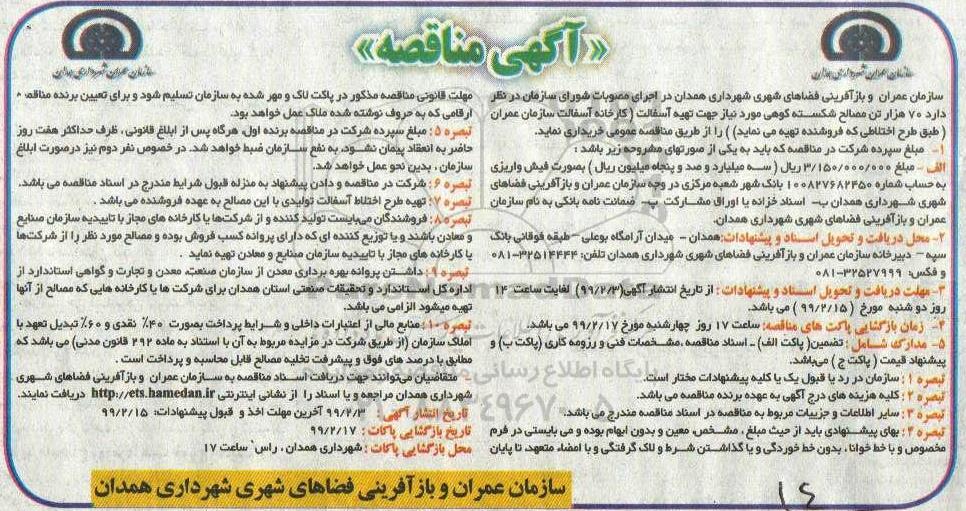 «آگهی مناقصه»
سازمان عمران شهرداری همدان
سازمان عمران شهرداری همدان
سازمان عمران و بازآفرینی فضاهای شهری شهرداری همدان در اجرای مصوبات شورای سازمان در نظر
دارد ۷۰ هزار تن مصالح شکسته کوهی مورد نیاز جهت تهیه آسفالت (کارخانه آسفالت سازمان
(طبق طرح اختلاطی که فروشنده تهیه می نماید)) را از طریق مناقصه عمومی خریداری نماید.
۱- مبلغ سپرده شرکت در مناقصه که باید به یکی از صورتهای مشروحه زیر باشد:
الف- مبلغ ۳/۱۵۰/۰۰۰/۰۰۰ ریال (سه میلیارد و صد و پنجاه میلیون ریال) بصورت فیش واریزی
به حساب شماره ۱۰۰۸۲۷۶۸۲۴۵۰ بانک شهر شعبه مرکزی در وجه سازمان عمران و بازآفرینی فضاهای
شهری شهرداری همدان ب- اسناد خزانه یا اوراق مشارکت پ- ضمانت نامه بانکی به نام سازمان
عمران و بازآفرینی فضاهای شهری شهرداری همدان.
۲- محل دریافت و تحویل اسناد و پیشنهادات: همدان - میدان آرامگاه بوعلی - طبقه فوقانی بانک
سپه - دبیرخانه سازمان عمران و بازآفرینی فضاهای شهری شهرداری همدان تلفن: ۳۲۵۱۴۴۴۴-۰۸۱
و فکس: ۳۲۵۲۷۹۹۹-۰۸۱
۳- مهلت دریافت و تحویل اسناد و پیشنهادات: از تاریخ انتشار آگهی (۹۹/۲/۳) لغایت ساعت ۱۴
روز دو شنبه مورخ (۹۹/۲/۱۵) می باشد.
۴- زمان بازگشایی پاکت های مناقصه: ساعت ۱۷ روز چهارشنبه مورخ ۹۹/۲/۱۷ می باشد.
۵- مدارک شامل: تضمین (پاکت الف) - اسناد مناقصه، مشخصات فنی و رزومه کاری (پاکت ب) و
پیشنهاد قیمت (پاکت ج) می‌باشد.
تبصره ۱: سازمان در رد یا قبول یک یا کلیه پیشنهادات مختار است.
تبصره ۲: کلیه هزینه های درج آگهی به عهده برنده مناقصه می باشد.
تبصره ۳: سایر اطلاعات و جزییات مربوط به مناقصه در اسناد مناقصه مندرج می باشد.
تبصره ۴: بهای پیشنهادی باید از حیث مبلغ، مشخص، معین و بدون ابهام بوده و می بایستی در فرم
مخصوص و با خط خوانا، بدون خط خوردگی و یا گذاشتن شرط و لاک گرفتگی و با امضاء متعهد، تا پایان
مهلت قانونی مناقصه مذکور در پاکت لاک و مهر شده به سازمان تسلیم شود و برای تعیین برنده مناقصه
ارقامی که به حروف نوشته شده ملاک عمل خواهد بود.
تبصره ۵: مبلغ سپرده شرکت در مناقصه برنده اول، هرگاه پس از ابلاغ قانونی، ظرف حداکثر هفت روز
حاضر به انعقاد پیمان نشود، به نفع سازمان ضبط خواهد شد. در خصوص نفر دوم نیز درصورت ابلاغ
سازمان، بدین نحو عمل خواهد شد.
تبصره ۶: شرکت در مناقصه و دادن پیشنهاد به منزله قبول شرایط مندرج در اسناد مناقصه می باشد.
تبصره ۷: تهیه طرح اختلاط آسفالت تولیدی با این مصالح به عهده فروشنده می باشد.
تبصره ۸: فروشندگان می‌بایست تولید کننده و از شرکت‌ها یا کارخانه های مجاز با تاییدیه سازمان صنایع
و معادن باشند و یا توزیع کننده ای که دارای پروانه کسب فروش بوده و مصالح مورد نظر را از شرکت‌ها
یا کارخانه های مجاز با تاییدیه سازمان صنایع و معادن تهیه نماید
تبصره ۹: داشتن پروانه بهره برداری معدن از سازمان صنعت، معدن و تجارت و گواهی استاندارد از
اداره کل استاندارد و تحقیقات صنعتی استان همدان برای شرکت ها یا کارخانه هایی که مصالح از آنها
تهیه میشود الزامی می باشد.
تبصره ۱۰: منابع مالی از اعتبارات داخلی و شرایط پرداخت بصورت ۴۰٪ نقدی و ۶۰٪ تبدیل تعهد با
املاک سازمان (از طریق شرکت در مزایده مربوط به آن با استناد به ماده ۲۹۲ قانون مدنی) می باشد که
مطابق با درصد های فوق و پیشرفت تخلیه مصالح قابل محاسبه و پرداخت است.
- متقاضیان می‌توانند جهت دریافت اسناد مناقصه به سازمان عمران و بازآفرینی فضاهای شهری
شهرداری همدان مراجعه و یا اسناد را از نشانی اینترنتی http://ets.hamedan.ir دریافت نمایند.
تاریخ انتشار آگهی: ۹۹/۲/۳ آخرین مهلت اخذ و قبول پیشنهادات: ۹۹/۲/۱۵
تاریخ بازگشایی پاکات: ۹۹/۲/۱۷
محل بازگشایی پاکات: شهرداری همدان، راس ساعت ۱۷
سازمان عمران و بازآفرینی فضاهای شهری شهرداری همدان